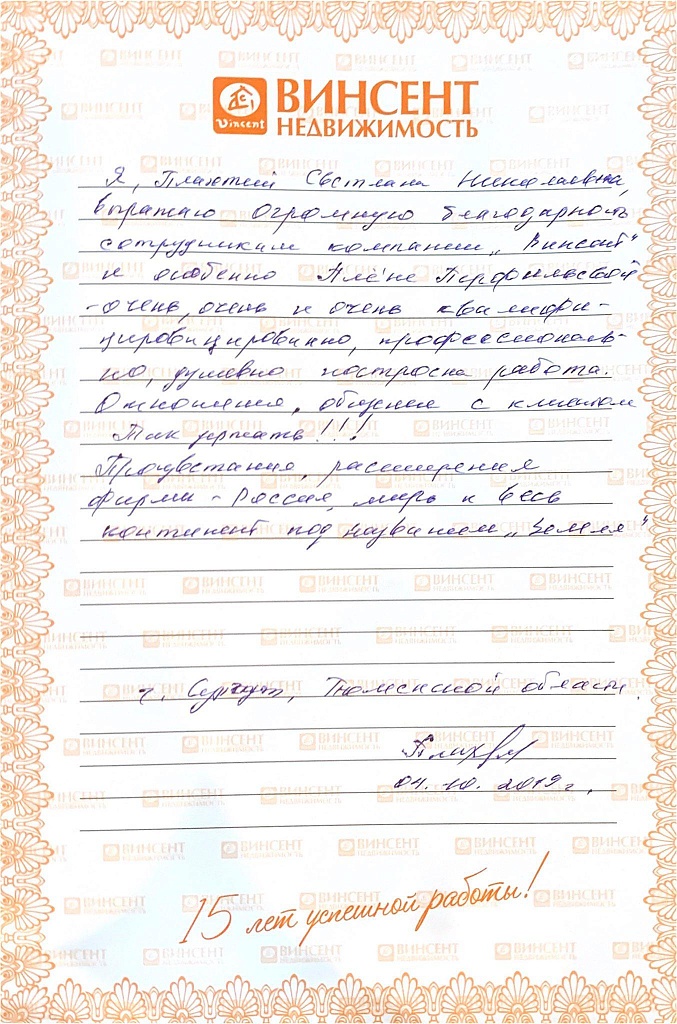 Vincent
ВИНСЕНТ
НЕДВИЖИМОСТЬ
Я, Светлана Николаевна,
выражаю огромную благодарность
сотрудникам компании „Винсент“
и особенно Алёне
-очень, очень и очень квалифи-
цировицировинно, профессиональ-
но, душевно построена работа.
Отношения, общения с клиентом
Так держать!!!
Процветания, расширения
фирмы - Россия, миръ и весь
континент под названием „Земля“
г. Сургут, Тюменской области.
04.10.2019г.
15 лет успешной работы!